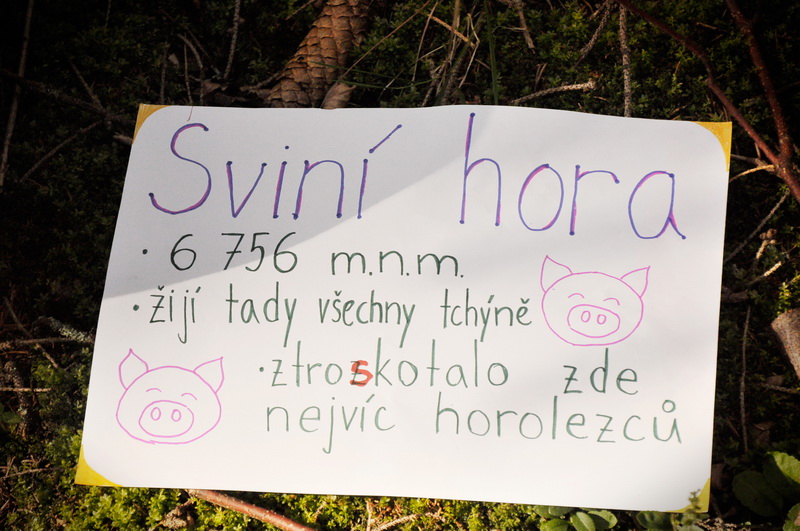 Sviní hora
· 6 756 m.n.m.
· žijí tady všechny tchýně
· ztroskotalo zde
nejvíc horolezců